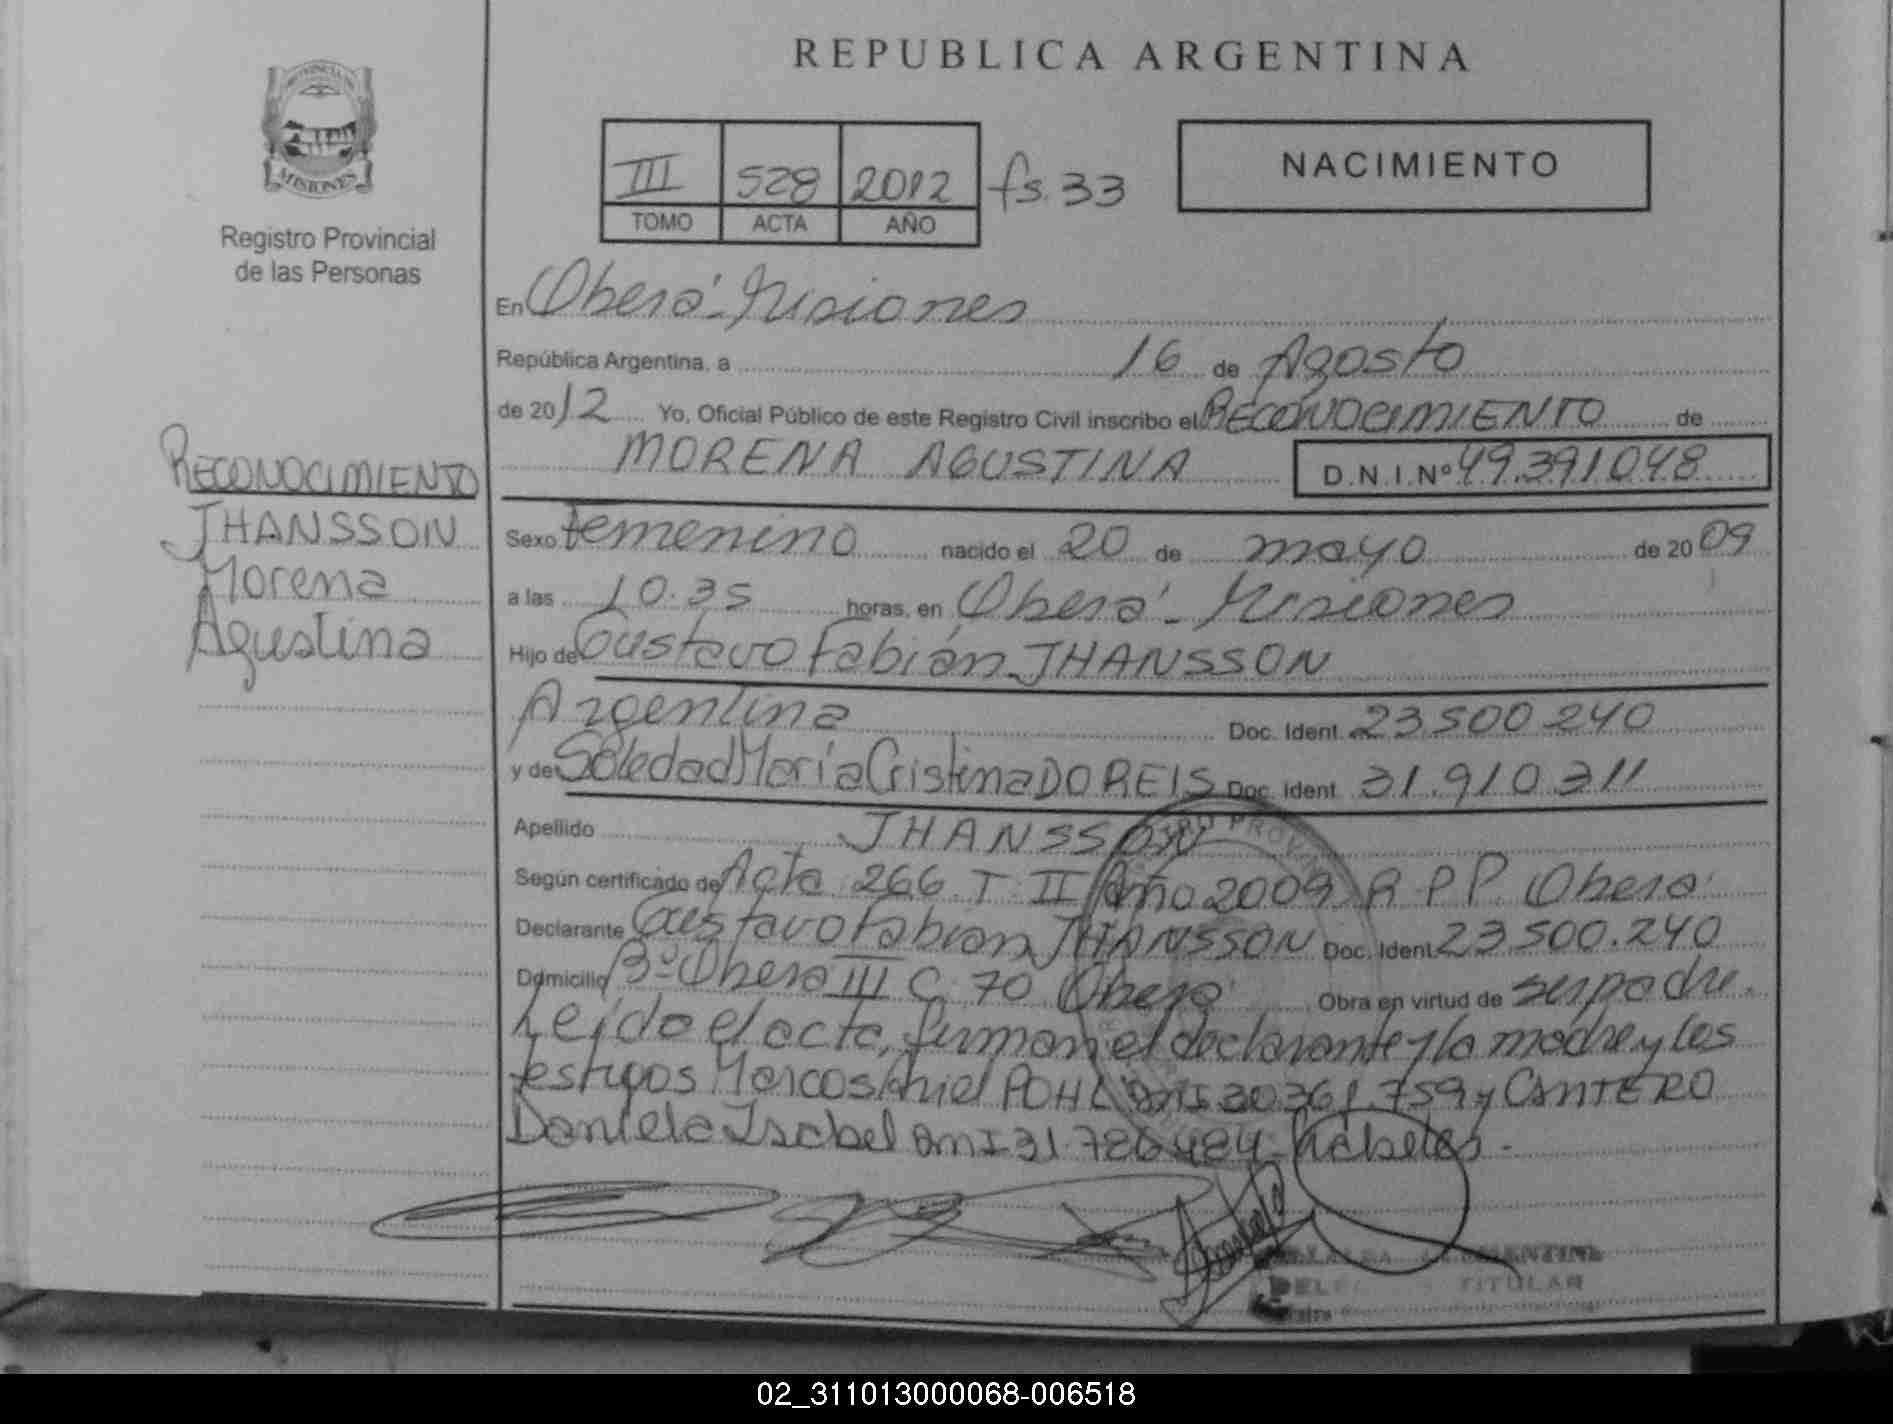 REPUBLICA ARGENTINA
PROVINCIA DE
MISIONES
Registro Provincial
de las Personas
III 528 2012 fs. 33
TOMO ACTA AÑO
NACIMIENTO
En Oberá - Misiones
República Argentina, a 16 de Agosto
de 2012 Yo, Oficial Público de este Registro Civil inscribo el RECONOCIMIENTO de
MORENA AGUSTINA D.N.I.Nº 49.391.048
RECONOCIMIENTO
JHANSSON
Morena
Agustina
Sexo femenino nacido el 20 de mayo de 2009
a las 10.35 horas, en Oberá - Misiones
Hijo de Gustavo Fabián JHANSSON
Argentina Doc. Ident. 23.500.240
y de Soledad María Cristina DO REIS Doc. Ident. 31.910.311
Apellido JHANSSON
Según certificado de Acta 266 T. II Año 2009 R P P. Oberá
Declarante Gustavo Fabian JHANSSON Doc. Ident. 23.500.240
Domicilio Bº Oberá III C. 70 Oberá Obra en virtud de ser padre.
Leída el acta, firman el declarante y la madre y los
testigos Marcos Ariel POHL DNI 30.361.759 y CANTERO
Daniela Isabel DNI 31.786.484 hábiles.-
TITULAR
02_311013000068-006518